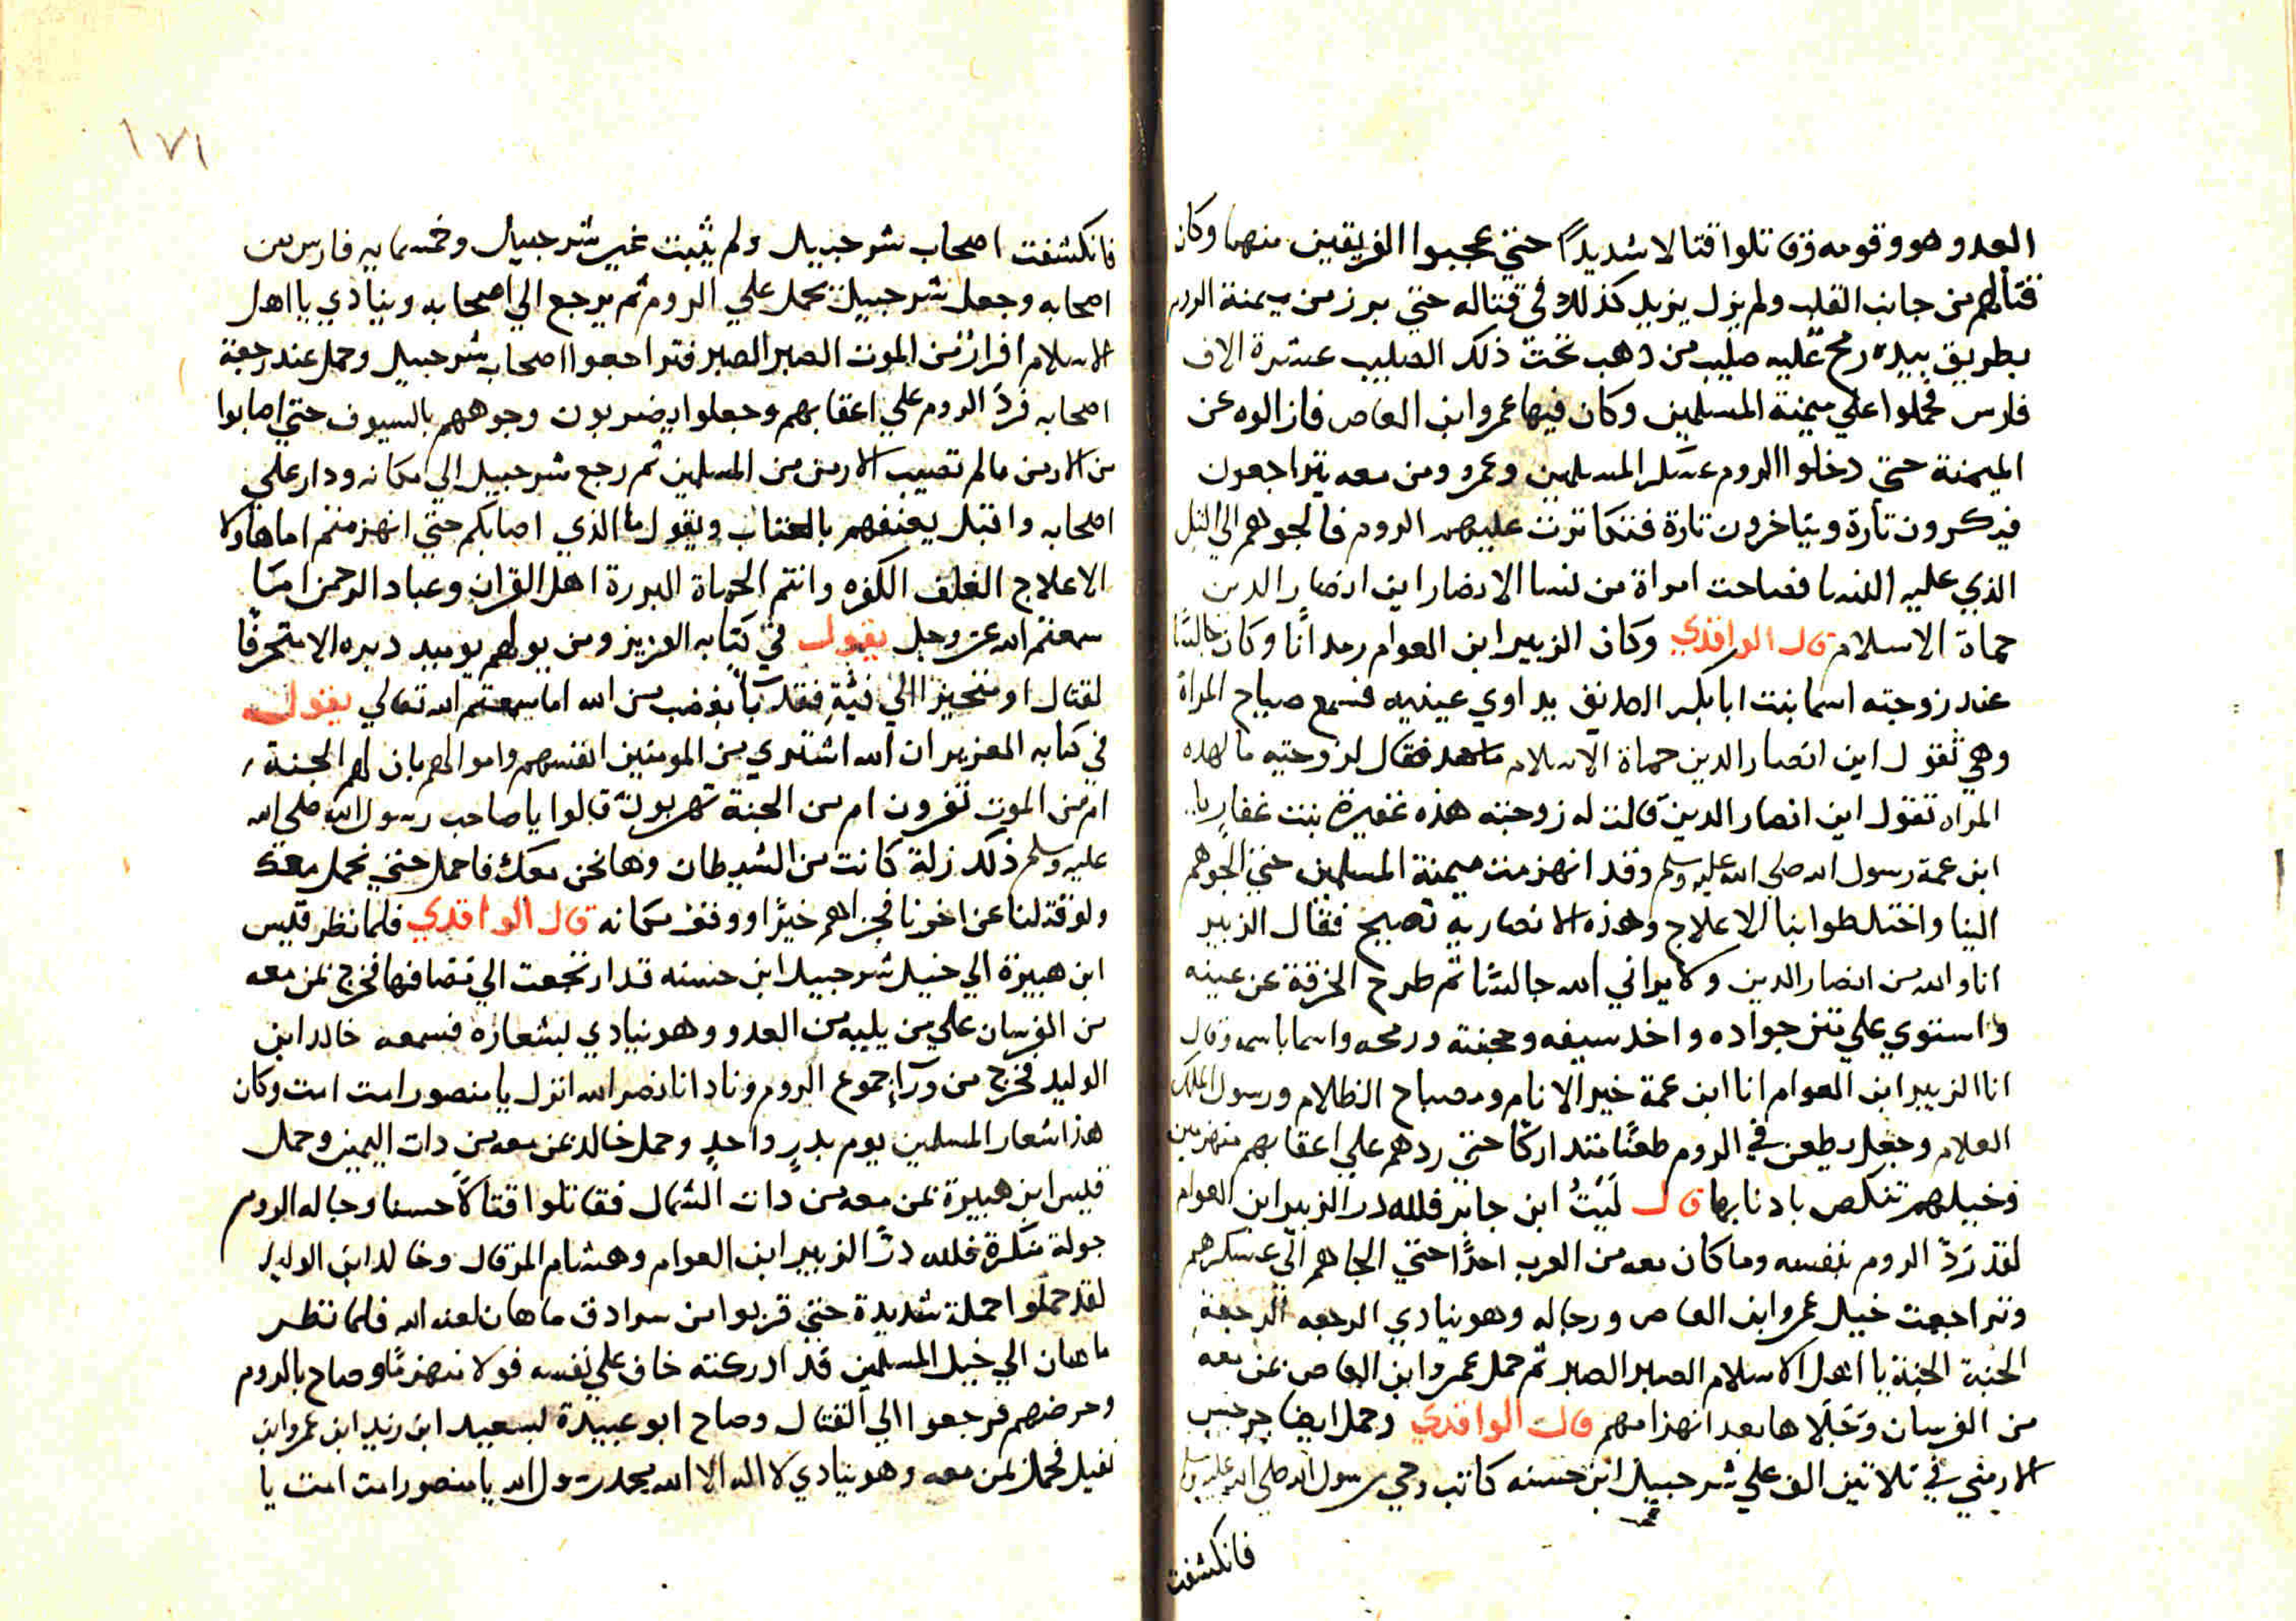 العدو هو وقومه وقاتلوا قتالا شديدًا حتي عجبوا الفريقين منهما وكان
قتالهم من جانب القلب ولم يزل يزيد كذلك في قتاله حتي برز من ميمنة الروم
بطريق بيده رمح عليه صليب من ذهب تحت ذلك الصليب عشرة الاف
فارس فحملوا علي ميمنة المسلمين وكان فيها عمرو ابن العاص فازالوه عن
الميمنة حتي دخلوا الروم عسكر المسلمين وعمرو ومن معه يتراجعون
فيكرون تارة ويتاخرون تارة فتكاثرت عليهم الروم فالجوهم الي التل
الذي عليه النسا فصاحت امراة من نسا الانصار اين انصار الدين
حماة الاسلام قال الواقدي وكان الزبير ابن العوام رمدانًا وكان جالسًا
عند زوجته اسما بنت ابا بكر الصديق يداوي عينيه فسمع صياح المراة
وهي تقول اين انصار الدين حماة الاسلام فقال لزوجته ما لهده
المراه تقول اين انصار الدين قالت له زوجته هذه غفيرة بنت غفار يا
ابن عمة رسول الله صلي الله عليه وسلم وقد انهزمت ميمنة المسلمين حتي الجوهم
الينا واختلطوا بنا الاعلاج وهذه الانصارية تصيح فقال الزبير
انا والله من انصار الدين ولا يراني الله جالسًا ثم طرح الخرقة عن عينه
واستوي علي متن جواده واخد سيفه ومجنته ورمحه واسما باسمه وقال
انا الزبير ابن العوام انا ابن عمة خير الانام ومصباح الظلام ورسول الملك
العلام وجعل يطعن في الروم طعنًا متداركًا حتي ردهم علي اعقابهم منهزمين
وخيلهم تنكص بادنابها قال لَيثُ ابن جابر فلله در الزبير ابن العوام
لقد رَدّ الروم بنفسه وما كان معه من العرب احدًا حتي الجاهم الي عسكرهم
وتراجعت خيل عمرو ابن العاص ورجاله وهو ينادي الرجعه الرجعة
الجنة الجنة يا اهل الاسلام الصبر الصبر ثم حمل عمرو ابن العاص بمن معه
من الفرسان بعد انهزامهم قال الواقدي وحمل ايضا جرجيس
الارمني في تلاتين الف علي شرحبيل ابن حسنه كاتب وحي رسول الله صلي الله عليه وسلم
فانكشفت
١٧١
فانكشفت اصحاب شرحبيل ولم يثبت غير شرحبيل وخمسمايه فارس من
اصحابه وجعل شرحبيل يحمل علي الروم ثم يرجع الي اصحابه وينادي يا اهل
الاسلام افرارًا من الموت الصبر الصبر فتراجعوا اصحاب شرحبيل وحمل عند رجعة
اصحابه فردّ الروم علي اعقابهم وجعلوا يضربون وجوههم بالسيوف حتي اصابوا
من الارمن مالم تصيب الارمن من المسلمين ثم رجع شرحبيل الي مكانه ودار علي
اصحابه واقبل يعنفهم بالعتاب ويقول ما الذي اصابكم حتي انهزمتم اما هاولا
الاعلاج الغلف الكفره وانتم الحماة البررة اهل القران وعباد الرحمن اما
سمعتم الله عز وجل يقول في كتابه العزيز ومن يولهم يوميد دبره الا متحرفًا
لقتال او متحيزا الي فئةٍ فقد بآ بغضب من الله اما سمعتم الله تعالي يقول
في كتابه العزيز ان الله اشتري من المومنين انفسهم واموالهم بان لهم الجنة
ام من الموت تفرون ام من الجنة تهربون قالوا يا صاحب رسول الله صلي الله
عليه وسلم ذلك زلة كانت من الشيطان وها نحن معك فاحمل حتي نحمل معك
فجزاهم خيرًا ووقف مكانه قال الواقدي فلما نظر قيس
ابن هبيرة الي خيل شرحبيل ابن حسنه قد ارتجعت الي مصافها فخرج بمن معه
من الفرسان علي من يليه من العدو وهو ينادي بشعاره فسمعه خالد ابن
الوليد فخرج من ورآء جموع الروم ونادا نا نصر الله انزل يا منصور امت امت وكان
هذا شعار المسلمين يوم بدرٍ واحدٍ وحمل خالد بمن معه من دات اليمين وحمل
قيس ابن هبيرة بمن معه من دات الشمال فقاتلوا قتالاً حسنا وجاله الروم
جولة منكرة فلله درّ الزبير ابن العوام وهشام المرقال وخالد ابن الوليد
لقد حملوا حملة شديدة حتي قربوا من سرادق ماهان لعنه الله فلما نظر
ماهان الي خيل المسلمين قد ادركته خاف علي نفسه فولا منهزمًا وصاح بالروم
وحرضهم فرجعوا الي القتال وصاح ابو عبيدة لسعيد ابن زيد ابن عمرو ابن
نفيل فحمل بمن معه وهو ينادي لا اله الا الله محمد رسول الله يا منصور امت امت يا